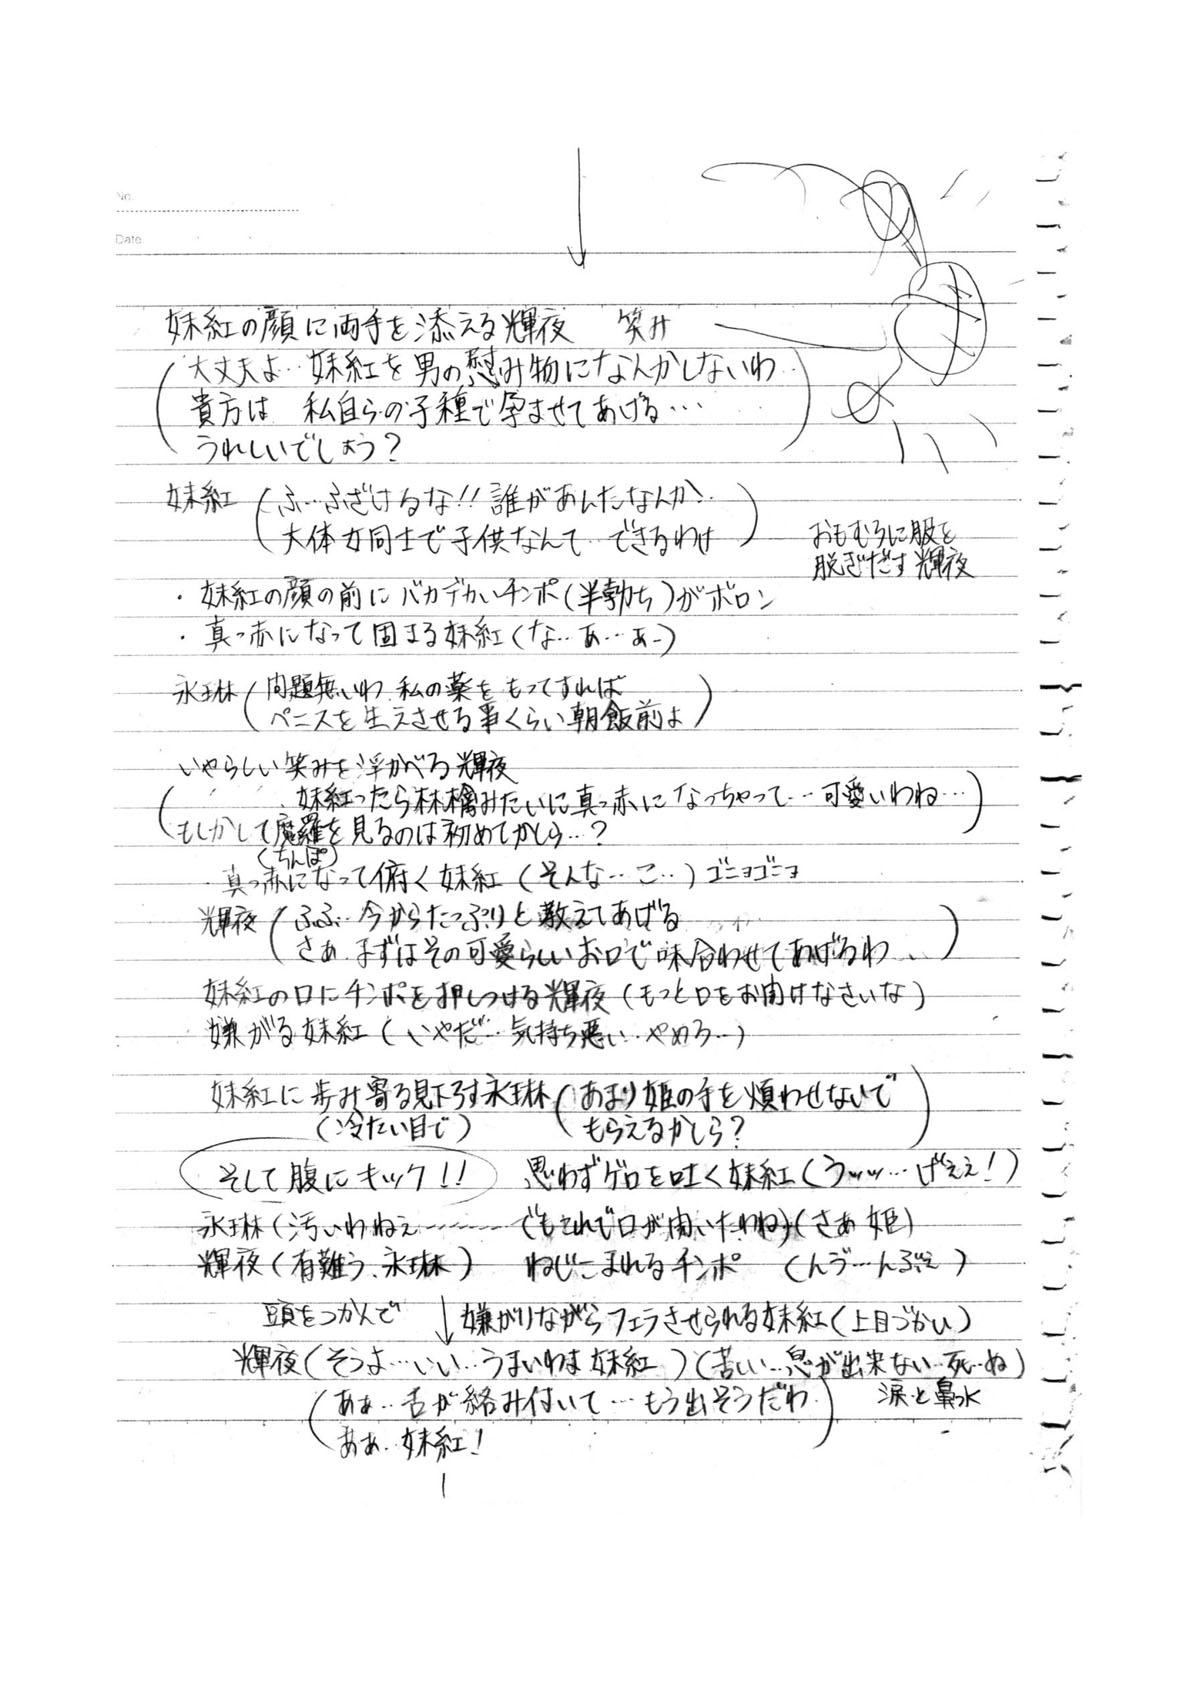 No.
Date
妹紅の顔に両手を添える輝夜　笑み
(大丈夫よ…妹紅を男の慰み物になんかしないわ…
貴方は　私自らの子種で孕ませてあげる…
うれしいでしょう？)
妹紅 (ふ…ふざけるな!! 誰があんたなんか…
大体女同士で子供なんて…できるわけ)
おもむろに服を
脱ぎだす輝夜
・妹紅の顔の前にバカデカいチンポ(半勃ち)がボロン
・真っ赤になって固まる妹紅(な…あ…あー)
永琳 (問題無いわ、私の薬をもってすれば
ペニスを生えさせる事くらい朝飯前よ)
いやらしい笑みを浮かべる輝夜
(妹紅ったら林檎みたいに真っ赤になっちゃって…可愛いわね…
もしかして魔羅を見るのは初めてかしら…？)
(ちんぽ)
・真っ赤になって俯く妹紅 (そんな…こ…) ゴニョゴニョ
輝夜 (ふふ…今からたっぷりと教えてあげる
さあ、まずはその可愛らしいお口で味合わせてあげるわ、、)
妹紅の口にチンポを押しつける輝夜 (もっと口をお開けなさいな)
嫌がる妹紅 (いやだ…気持ち悪い…やめろ…)
妹紅に歩み寄る見下ろす永琳 (あまり姫の手を煩わせないで
(冷たい目で) もらえるかしら？)
そして腹にキック!!　思わずゲロを吐く妹紅(うッッ…げぇぇ！)
永琳 (汚いわねぇ……… でもこれで口が開いたわね)(さあ 姫)
輝夜 (有難う、永琳)　ねじこまれるチンポ　(んう゛…んぶぇ)
頭をつかんで ↓ 嫌がりながらフェラさせられる妹紅(上目づかい)
輝夜 (そうよ…いい…うまいわぁ妹紅) (苦しい…息が出来ない…死…ぬ)
(あぁ…舌が絡み付いて…もう出そうだわ 涙と鼻水
ああ…妹紅！)